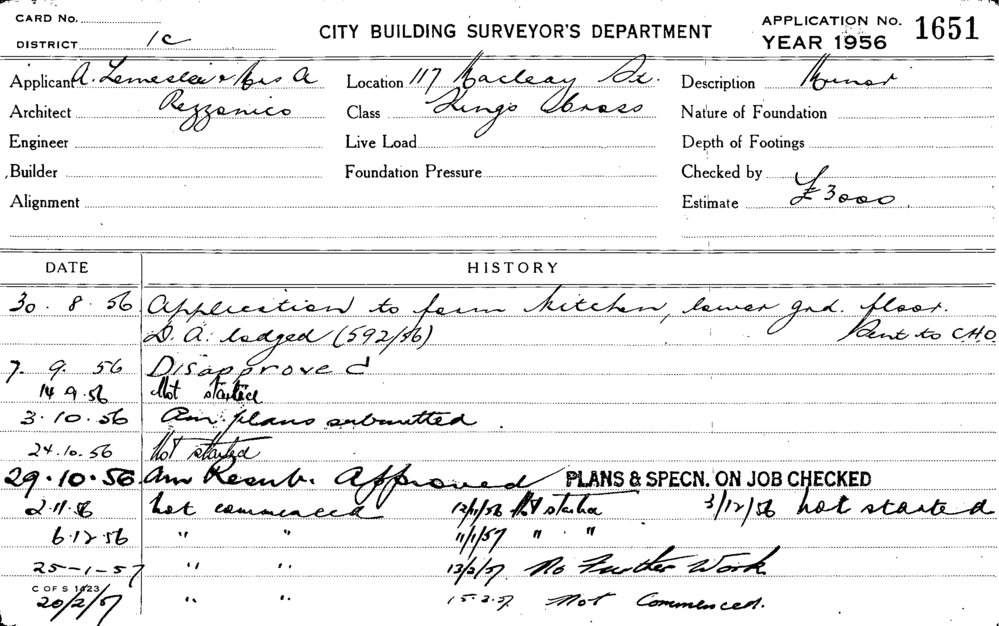 CARD No.
DISTRICT 1c
CITY BUILDING SURVEYOR'S DEPARTMENT
APPLICATION No. 1651
YEAR 1956
Applicant A. & Mrs A
Location 117 Macleay St.
Description Minor
Architect Rezzonico
Class Kings Cross
Nature of Foundation
Engineer
Live Load
Depth of Footings
Builder
Foundation Pressure
Checked by
Alignment
Estimate £3000
DATE HISTORY
30. 8. 56 Application to form kitchen, lower grd. floor.
D. A. lodged (592/56) Sent to C.H.O.
7. 9. 56 Disapproved
14 9.56 Not started
3.10.56 Am. plans submitted.
24.10.56 Not started
29.10.56 Am Resub. Approved PLANS & SPECN. ON JOB CHECKED
2.11.56 not commenced 12/11/56 Not started 3/12/56 not started
6.12.56 " " 11/1/57 " "
25-1-57 " " 13/2/57 No Further Work
C OF S 1423
20/2/57 " " 15.3.57 Not Commenced.